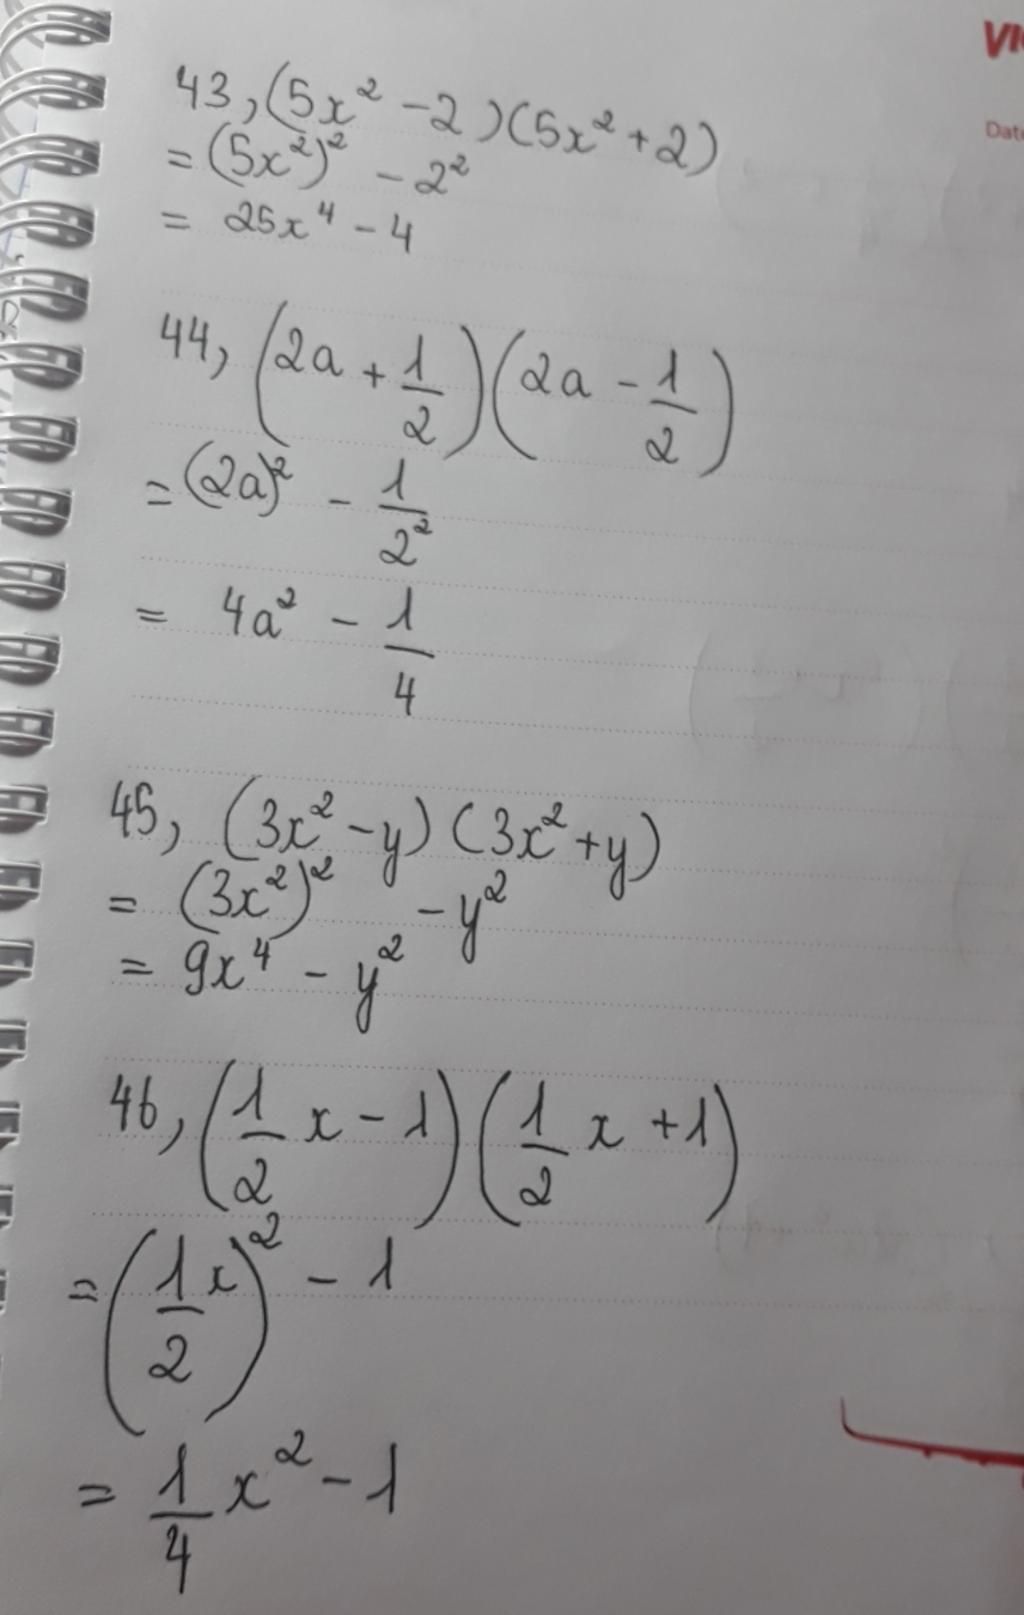 43, (5x² - 2)(5x² + 2)
= (5x²)² - 2²
= 25x⁴ - 4
44, (2a + 1/2)(2a - 1/2)
= (2a)² - 1/2²
= 4a² - 1/4
45, (3x² - y)(3x² + y)
= (3x²)² - y²
= 9x⁴ - y²
46, (1/2 x - 1)(1/2 x + 1)
= (1/2 x)² - 1
= 1/4 x² - 1